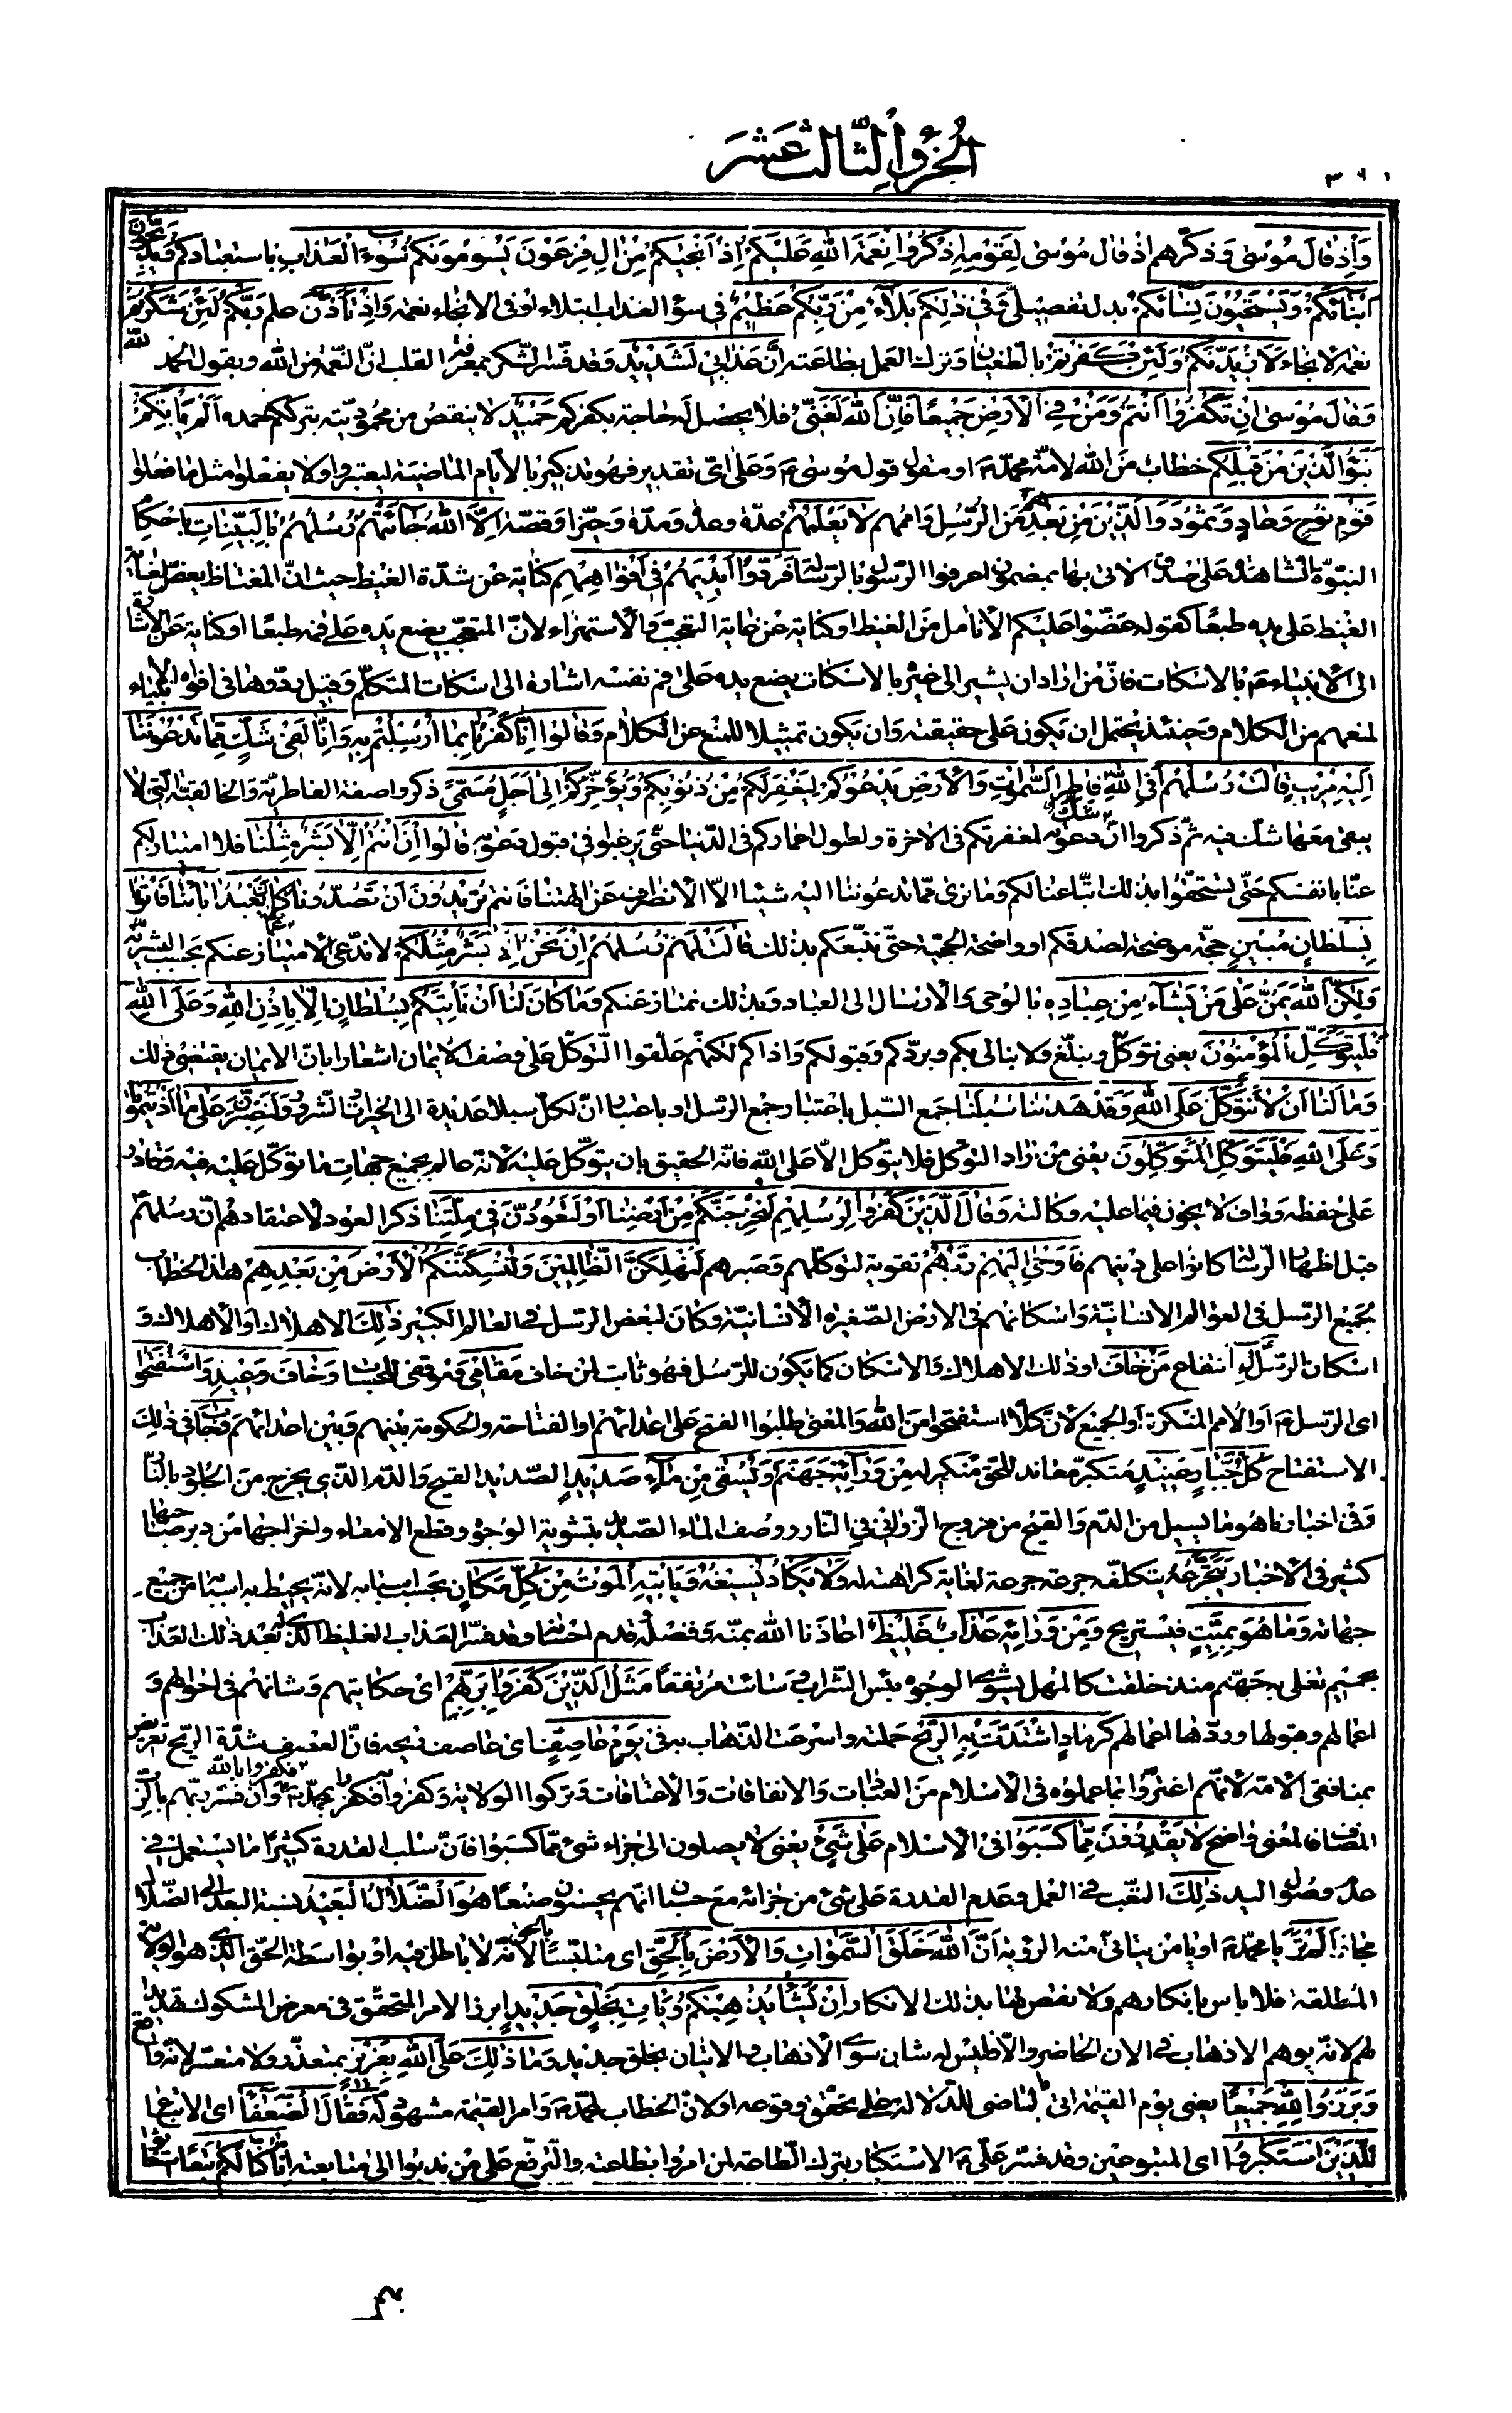 الجزؤ الثالث عشر
٣٦١
وَاِذْ قالَ مُوْسىٰ وَذكّرهم اذ قال مُوسىٰ لِقَوْمِهِ اذْكُرُوا نِعْمَةَ اللّٰهِ عَلَيْكُمْ اِذْ اَنْجٰيكُمْ مِنْ اٰلِ فِرْعَوْنَ يَسُوْمُوْنَكُمْ سُوْءَ الْعَذابِ باستعبادكم وَيُذَبِّحُوْنَ
اَبْنائَكُمْ وَيَسْتَحْيُوْنَ نِسائَكُمْ بدل تفصيلىّ وَفى ذٰلِكُمْ بَلاءٌ مِنْ رَبِّكُمْ عَظيْمٌ فى سوء العذاب ابتلاء او فى الانجاء نعمة وَاِذْ تَاَذَّنَ علم رَبُّكُمْ لَئِنْ شَكَرْتُمْ
نعمة الانجاء لَاَزيْدَنَّكُمْ وَلَئِنْ كَفَرْتُمْ بالطّغيان وترك العمل بطاعته اِنَّ عَذابى لَشَديْدٌ وقد فسّر الشّكر بمعرفة القلب انّ النّعمة من اللّٰه وبقول الحمد للّٰه
وَقالَ مُوْسىٰ اِنْ تَكْفُرُوْا اَنْتُمْ وَمَنْ فِى الْاَرْضِ جَميْعاً فَاِنَّ اللّٰهَ لَغَنِىٌّ فلا يحصل له حاجة بكفركم حَميْدٌ لا ينقص من محموديّته بترككم حمده اَلَمْ يَأْتِكُمْ
نَبَؤُا الَّذيْنَ مِنْ قَبْلِكُمْ خطاب من اللّٰه لامّة محمّد ص او مقول قول موسى ع وعلى اىّ تقدير فهو تذكير بالايّام الماضية ليعتبروا ولا يفعلوا مثل ما فعلوا
قَوْمِ نُوْحٍ وَعادٍ وَثَمُوْدَ وَالَّذيْنَ مِنْ بَعْدِهِمْ من الرّسل واممهم لا يَعْلَمُهُمْ عدّة وعدداً ومدّة وحيّزاً وقصّة اِلَّا اللّٰهُ جائَتْهُمْ رُسُلُهُمْ بِالْبَيِّناتِ باحكام
النبوّة الشاهدة على صدق الآتى بها بمضمون اعرفوا الرّسول بالرّسالة فَرَدُّوْا اَيْدِيَهُمْ فى اَفْواهِهِمْ كناية عن شدّة الغيظ حيث انّ المغتاظ يعضّ لغاية
الغيظ على يديه طبعاً كقوله عَضّوا عليكم الانامل من الغيظ او كناية عن غاية التعجّب والاستهزاء لانّ المتعجّب يضع يده على فمه طبعاً او كناية عن الاشارة
الى الانبياء ع بالاسكات فانّ من اراد ان يشير الى غيره بالاسكات يضع يده على فم نفسه اشارة الى اسكات المتكلّم وقيل ردّوها فى افواه الانبياء
لمنعهم من الكلام وحينئذ يحتمل ان يكون على حقيقته وان يكون تمثيلاً للمنع عن الكلام وَقالُوا اِنّا كَفَرْنا بِما اُرْسِلْتُمْ بِهِ وَاِنّا لَفى شَكٍّ مِمّا تَدْعُوْنَنا
اِلَيْهِ مُريْبٍ قالَتْ رُسُلُهُمْ اَفِى اللّٰهِ شَكٌّ فاطِرِ السَّمٰواتِ وَالْاَرْضِ يَدْعُوْكُمْ لِيَغْفِرَ لَكُمْ مِنْ ذُنُوْبِكُمْ وَيُؤَخِّرَكُمْ اِلىٰ اَجَلٍ مُسَمّىً ذكروا صفة الفاطريّة والخالقيّة التى لا
يبقى معها شكّ فيه ثمّ ذكروا انّ دعوته لمغفرتكم فى الآخرة ولطول اعماركم فى الدّنيا حتّى يرغبوا فى قبول دعوته قالُوا اِنْ اَنْتُمْ اِلّا بَشَرٌ مِثْلُنا فلا امتياز لكم
عنّا بانفسكم حتّى تستحقّوا بذلك اتّباعنا لكم وما نرى ممّا تدعوننا اليه شيئاً الّا الانظراف عن الهتنا فانتم تُريْدُوْنَ اَنْ تَصُدُّوْنا عَمّا كانَ يَعْبُدُ اٰباؤُنا فَأْتُوْنا
بِسُلْطانٍ مُبيْنٍ حجّة موضحة لصدقكم او واضحة الحجيّة حتّى نتّبعكم بذلك قالَتْ لَهُمْ رُسُلُهُمْ اِنْ نَحْنُ اِلّا بَشَرٌ مِثْلُكُمْ لا ندّعى الامتياز عنكم بحسب البشريّة
وَلٰكِنَّ اللّٰهَ يَمُنُّ عَلىٰ مَنْ يَشاءُ مِنْ عِبادِهِ بالوحى والارسال الى العباد وبذلك نمتاز عنكم وَما كانَ لَنا اَنْ نَأْتِيَكُمْ بِسُلْطانٍ اِلّا بِاِذْنِ اللّٰهِ وَعَلَى اللّٰهِ
فَلْيَتَوَكَّلِ الْمُؤْمِنُوْنَ يعنى نتوكّل ونبلّغ ولا نبالى بكم وبردّكم وقبولكم واذاكم لكنّهم علّقوا التّوكّل على وصف الايمان اشعاراً بانّ الايمان يقتضى ذلك
وَما لَنا اَنْ لا نَتَوَكَّلَ عَلَى اللّٰهِ وَقَدْ هَدٰينا سُبُلَنا جمع السّبل باعتبار جمع الرّسل او باعتبار انّ لكلّ سبلاً عديدة الى الخيرات والشّرور وَلَنَصْبِرَنَّ عَلىٰ ما اٰذَيْتُمُوْنا
وَعَلَى اللّٰهِ فَلْيَتَوَكَّلِ الْمُتَوَكِّلُوْنَ يعنى من اراد التّوكّل فلا يتوكّل الّا على اللّٰه فانّه الحقيق بان يتوكّل عليه لانّه عالم بجميع جهات ما توكّل عليه فيه وقادر
على حفظه وواف لا يخون فيما عليه وكالته وَقالَ الَّذيْنَ كَفَرُوا لِرُسُلِهِمْ لَنُخْرِجَنَّكُمْ مِنْ اَرْضِنا اَوْ لَتَعُوْدُنَّ فى مِلَّتِنا ذكر العود لاعتقادهم انّ رسلهم
قبل اظهار الرّسالة كانوا على دينهم فَاَوْحىٰ اِلَيْهِمْ رَبُّهُمْ تقوية لتوكّلهم وصبرهم لَنُهْلِكَنَّ الظّالِميْنَ وَلَنُسْكِنَنَّكُمُ الْاَرْضَ مِنْ بَعْدِهِمْ هذا الخطاب
لجميع الرّسل فى العوالم الانسانيّة واسكانهم فى الارض الصّغيرة الانسانيّة وكان لبعض الرّسل فى العالم الكبير ذٰلِكَ الاهلاك او الاهلاك و
اسكان الرّسل او انتفاع مَنْ خافَ او ذلك الاهلاك والاسكان كما يكون للرّسل فهو ثابت لمن خاف مَقامى وموقفى للحساب وَخافَ وَعيْدِ وَاسْتَفْتَحُوْا
اى الرّسل ع او الامم المنكرة او الجميع لانّ كلّاً استفتحوا من اللّٰه والمعنى طلبوا الفتح على اعدائهم او الفتاحة والحكومة بينهم وبين اعدائهم وَخابَ فى ذلك
الاستفتاح كُلُّ جَبّارٍ عَنيْدٍ متكبّر معاند للحقّ منكر له مِنْ وَرائِهِ جَهَنَّمُ وَيُسْقىٰ مِنْ ماءٍ صَديْدٍ الصّديد القيح والدّم الذى يخرج من الجلود بالنّار
وفى اخبارنا هو ما يسيل من الدّم والقيح من فروج الزّوانى فى النّار ووصف الماء الصّديد بتشوية الوجوه وقطع الامعاء واخراجها من دبر صاحبها
كثير فى الاخبار يَتَجَرَّعُهُ يتكلّفه جرعة جرعة لغاية كراهته له وَلا يَكادُ يُسيْغُهُ وَيَأْتيْهِ الْمَوْتُ مِنْ كُلِّ مَكانٍ بحسب اسبابه لانّه يحيط به اسبابه من جميع
جهاته وَما هُوَ بِمَيِّتٍ فيستريح وَمِنْ وَرائِهِ عَذابٌ غَليْظٌ اعاذنا اللّٰه بمنّه وفضله وقدم احسانه وقد فسّر العذاب الغليظ الذى بعد ذلك العذاب
بحميم تغلى به جهنّم منذ خلقت كالمهل يشوى الوجوه بئس الشّراب وسائت مرتفقاً مَثَلُ الَّذيْنَ كَفَرُوا بِرَبِّهِمْ اى حكايتهم وشانهم فى احوالهم و
اعمالهم وقبولها وردّها اعمالهم كَرَمادٍ اشْتَدَّتْ بِهِ الرّيْحُ حملته واسرعت الذّهاب به فى يَوْمٍ عاصِفٍ اى عاصف ريحه فانّ العصف شدّة الرّيح تعريض
بمنافقى الامّة لانّهم اغترّوا بما عملوه فى الاسلام من العبادات والانفاقات والاعتاقات وتركوا الولاية وكفروا به فكفروا بمحمّد ص فكفروا باللّٰه وان فسّر ربّهم بالرّبّ
المضاف فالمعنى واضح لا يَقْدِرُوْنَ مِمّا كَسَبُوْا فى الاسلام عَلىٰ شَىْءٍ يعنى لا يصلون الى جزاء شىء ممّا كسبوا فانّ سلب القدرة كثيراً ما يستعمل فى
عدم وصول اليد ذٰلِكَ التّعب فى العمل وعدم القدرة على شىء من جزائه مع حسبان انّهم يحسنون صنعاً هُوَ الضَّلالُ الْبَعيْدُ نسبة البعد الى الضّلال
مجاز اَلَمْ تَرَ يا محمّد ص او يا من يتاتّى منه الرّؤية اَنَّ اللّٰهَ خَلَقَ السَّمٰواتِ وَالْاَرْضَ بِالْحَقِّ اى متلبّساً بالحقّ لانّه لا باطل فيه او بواسطة الحقّ الذى هو الولاية
المطلقة فلا باس بانكارهم ولا نقص لها بذلك الانكار اِنْ يَشَأْ يُذْهِبْكُمْ وَيَأْتِ بِخَلْقٍ جَديْدٍ ابرز الامر المتحقّق فى معرض المشكوك تهديداً
لهم لانّه يوهم الاذهاب فى الآن الحاضر والّا فليس له شان سوى الاذهاب والاتيان بخلق جديد وَما ذٰلِكَ عَلَى اللّٰهِ بِعَزيْزٍ بمتعذّر ولا متعسّر لانّه واقع
وَبَرَزُوا لِلّٰهِ جَميْعاً يعنى يوم القيمة اتى بالماضى للدّلالة على تحقّق وقوعه او لانّ الخطاب لمحمّد ص وامر القيمة مشهود له فَقالَ الضُّعَفاءُ اى الاتباع
لِلَّذيْنَ اسْتَكْبَرُوْا اى المتبوعين وقد فسّر علىّ ع الاستكبار بترك الطّاعة لمن امروا بطاعته والتّرفّع على من ندبوا الى متابعته اِنّا كُنّا لَكُمْ تَبَعاً